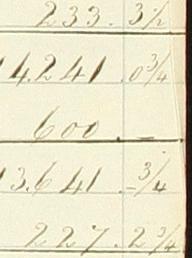 233. 3½
14.241. 0¾
600. —
13.641. –¾
227. 2¾